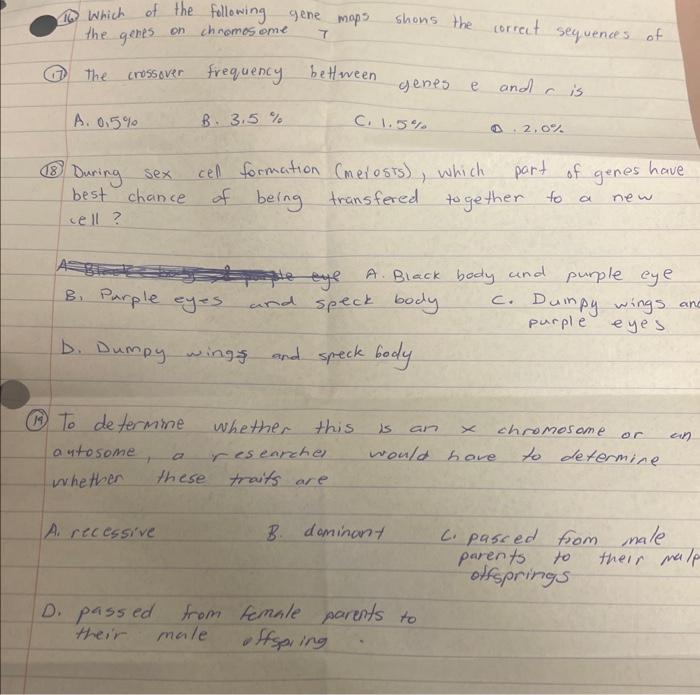 16) Which of the following gene maps shows the correct sequences of
the genes on chromosome 7
17) The crossover frequency bettween genes e and r is
A. 0.5% B. 3.5 % C. 1.5% D. 2.0%
18) During sex cell formation (meiosis), which part of genes have
best chance of being transfered together to a new
cell ?
eye A. Black body and purple eye
B. Purple eyes and speck body C. Dumpy wings and
purple eyes
D. Dumpy wings and speck body
19) To determine whether this is an x chromosome or an
autosome, a researcher would have to determine
whether these traits are
A. recessive B. dominant C. passed from male
parents to their male
offsprings
D. passed from female parents to
their male offspring.